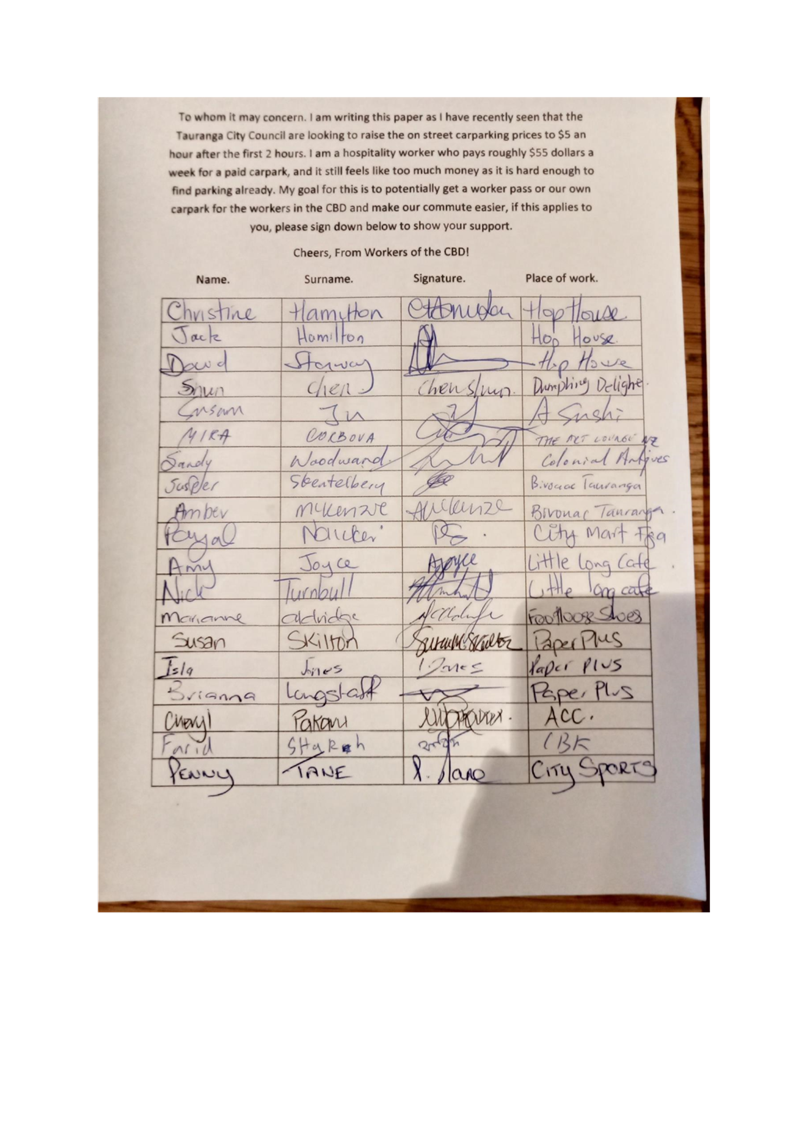 To whom it may concern. I am writing this paper as I have recently seen that the
Tauranga City Council are looking to raise the on street carparking prices to $5 an
hour after the first 2 hours. I am a hospitality worker who pays roughly $55 dollars a
week for a paid carpark, and it still feels like too much money as it is hard enough to
find parking already. My goal for this is to potentially get a worker pass or our own
carpark for the workers in the CBD and make our commute easier, if this applies to
you, please sign down below to show your support.
Cheers, From Workers of the CBD!
Name. Surname. Signature. Place of work.
Christine Hamilton Hop House
Jack Hamilton Hop House
David Hop House
Shun Chen Chen Shun Dumpling Delight
Susan A Sushi
MIRA THE ART LOUNGE NZ
Sandy Woodward Colonial Antiques
Bivouac Tauranga
Amber McKenzie AMcKenzie Bivouac Tauranga
Payal Naicker City Mart Tga
Amy Joyce AJoyce Little Long Cafe
Nick Turnbull Little long cafe
marianne aldridge Footloose Shoes
Susan Skilton Paper Plus
Isla Jones I Jones Paper Plus
Brianna Longstaff Paper Plus
Cheryl ACC.
Farid
PENNY TANE P. Tane CITY SPORTS